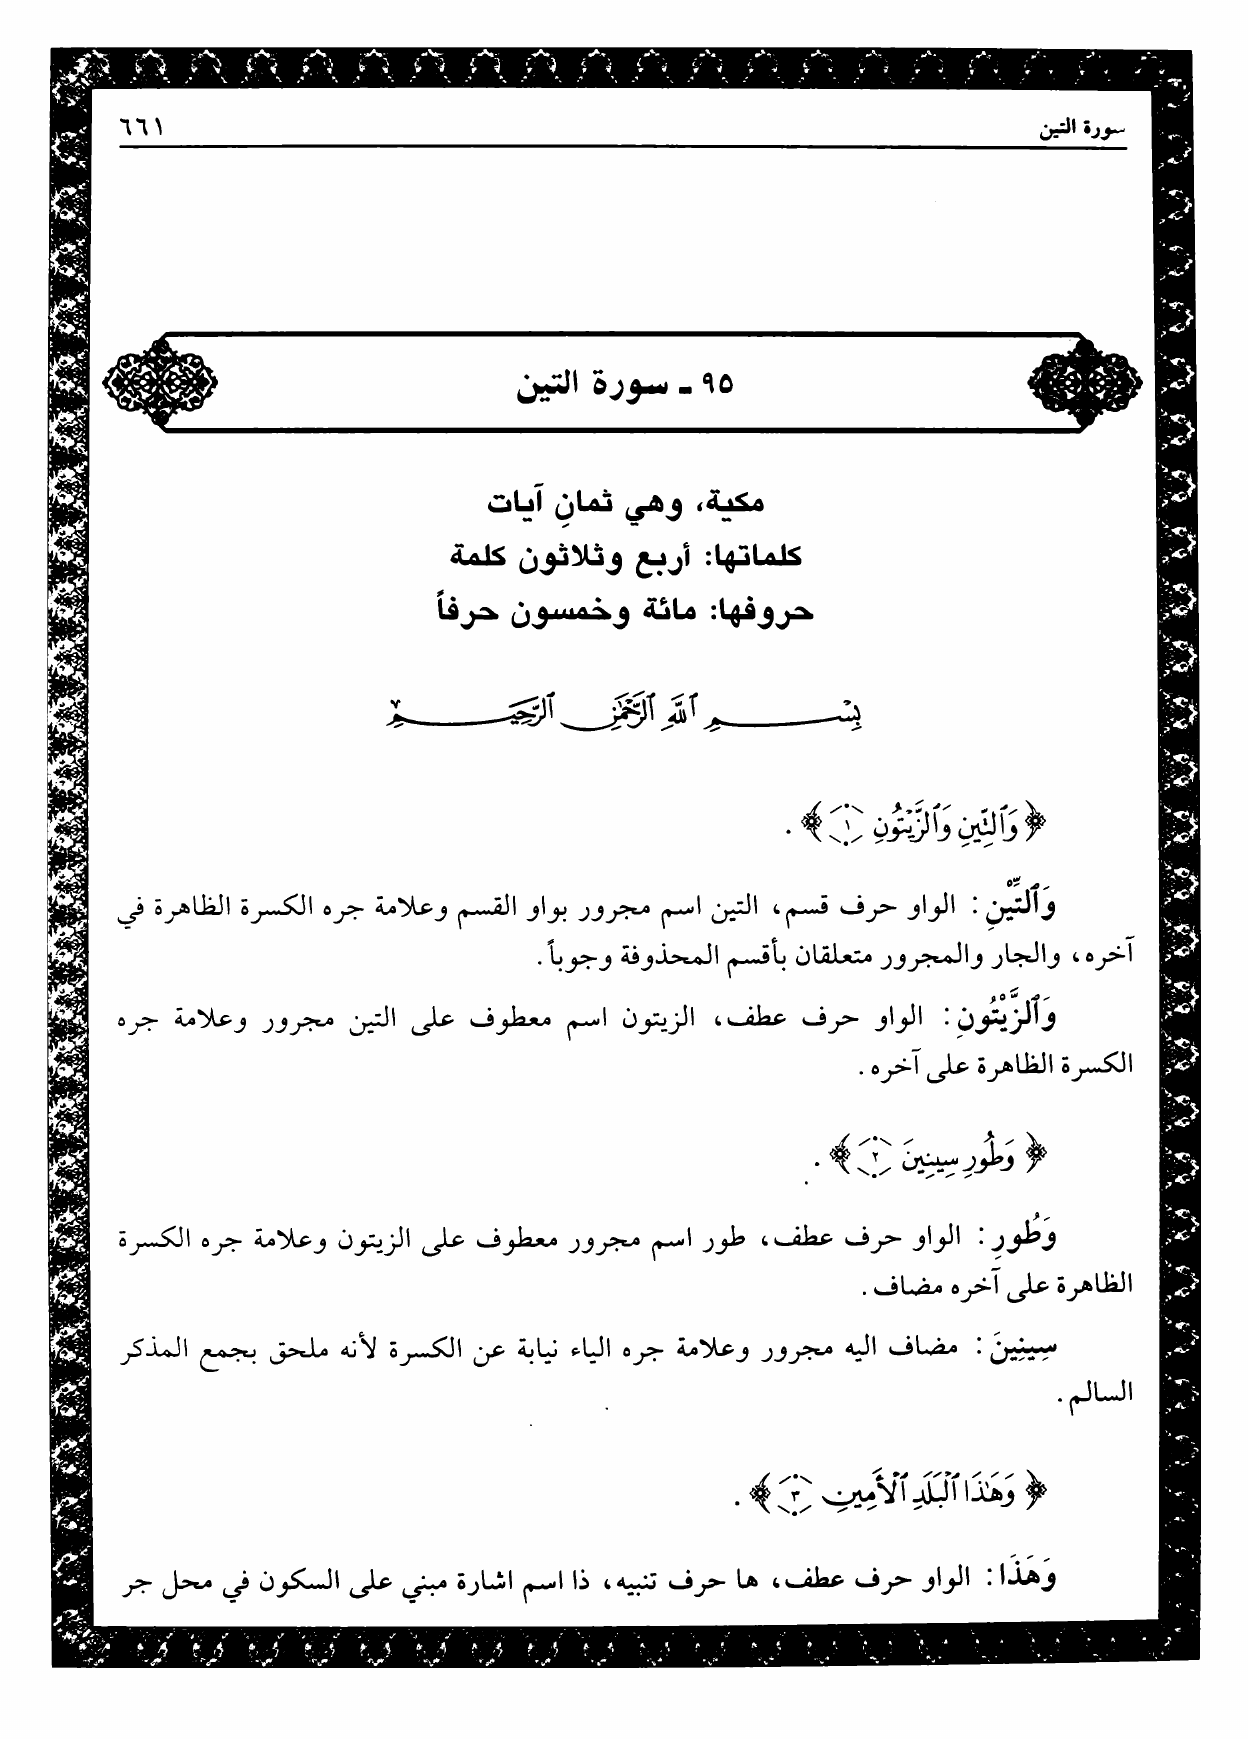 سورة التين ٦٦١
٩٥ ـ سورة التين
مكية، وهي ثمانِ آيات
كلماتها: أربع وثلاثون كلمة
حروفها: مائة وخمسون حرفاً
بِسْمِ ٱللَّهِ ٱلرَّحْمَٰنِ ٱلرَّحِيمِ
﴿ وَٱلتِّينِ وَٱلزَّيْتُونِ ١ ﴾ .
وَٱلتِّيْنِ : الواو حرف قسم، التين اسم مجرور بواو القسم وعلامة جره الكسرة الظاهرة في
آخره، والجار والمجرور متعلقان بأقسم المحذوفة وجوباً.
وَٱلزَّيْتُونِ : الواو حرف عطف، الزيتون اسم معطوف على التين مجرور وعلامة جره
الكسرة الظاهرة على آخره .
﴿ وَطُورِ سِينِينَ ٢ ﴾ .
وَطُورِ : الواو حرف عطف، طور اسم مجرور معطوف على الزيتون وعلامة جره الكسرة
الظاهرة على آخره مضاف .
سِينِينَ : مضاف اليه مجرور وعلامة جره الياء نيابة عن الكسرة لأنه ملحق بجمع المذكر
السالم .
﴿ وَهَٰذَا ٱلْبَلَدِ ٱلْأَمِينِ ٣ ﴾ .
وَهَذَا : الواو حرف عطف، ها حرف تنبيه، ذا اسم اشارة مبني على السكون في محل جر